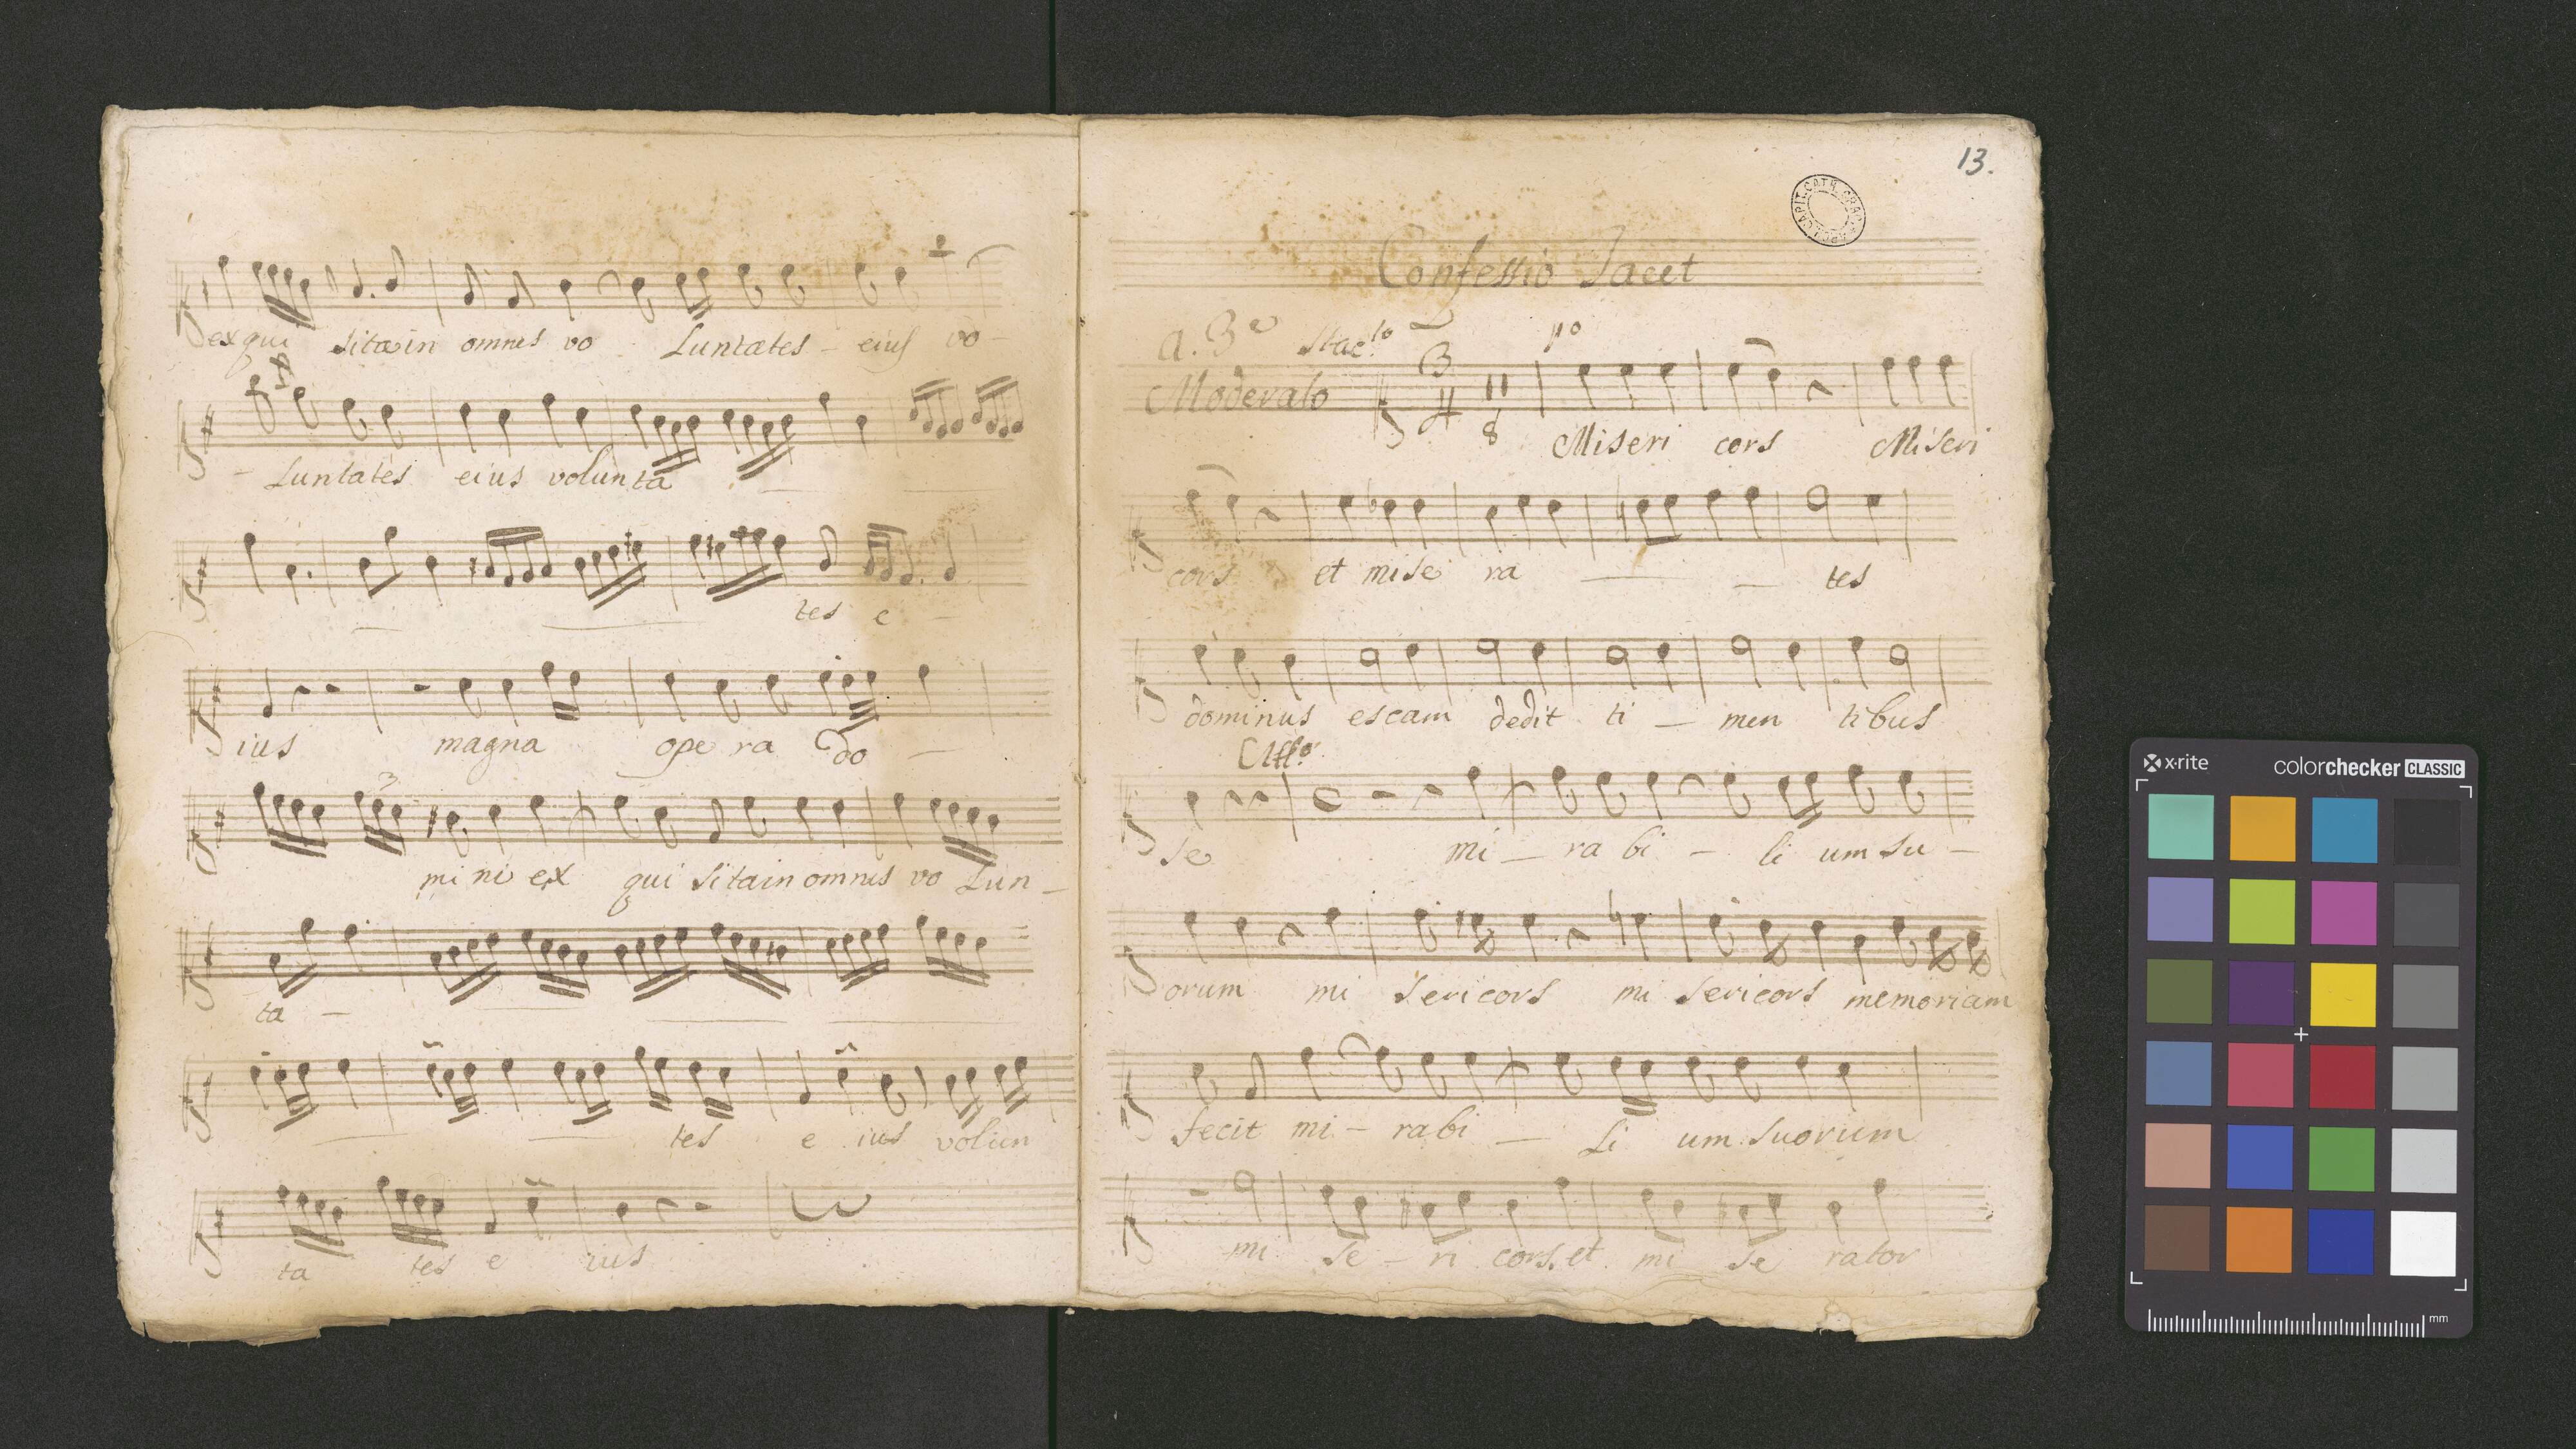 exqui sitain omnes vo Luntates - eius vo -
- Luntates eius volunta
tes e
ius magna opera do
3
mi ni ex qui sitain omnes vo Lun -
ta -
tes e ius volun
ta tes e ius
13.
Confessio Tacet
a. 3e Stac:to po
Moderato 3
Miseri cors Miseri
cors et mise ra - tes
dominus escam dedit ti - men tibus
All:o
se mi - ra bi - li um su -
orum mi sericors mi sericors memoriam
fecit mi - rabi - Li um suorum
mi se - ri cors. et mi se rator
x-rite colorchecker CLASSIC
mm